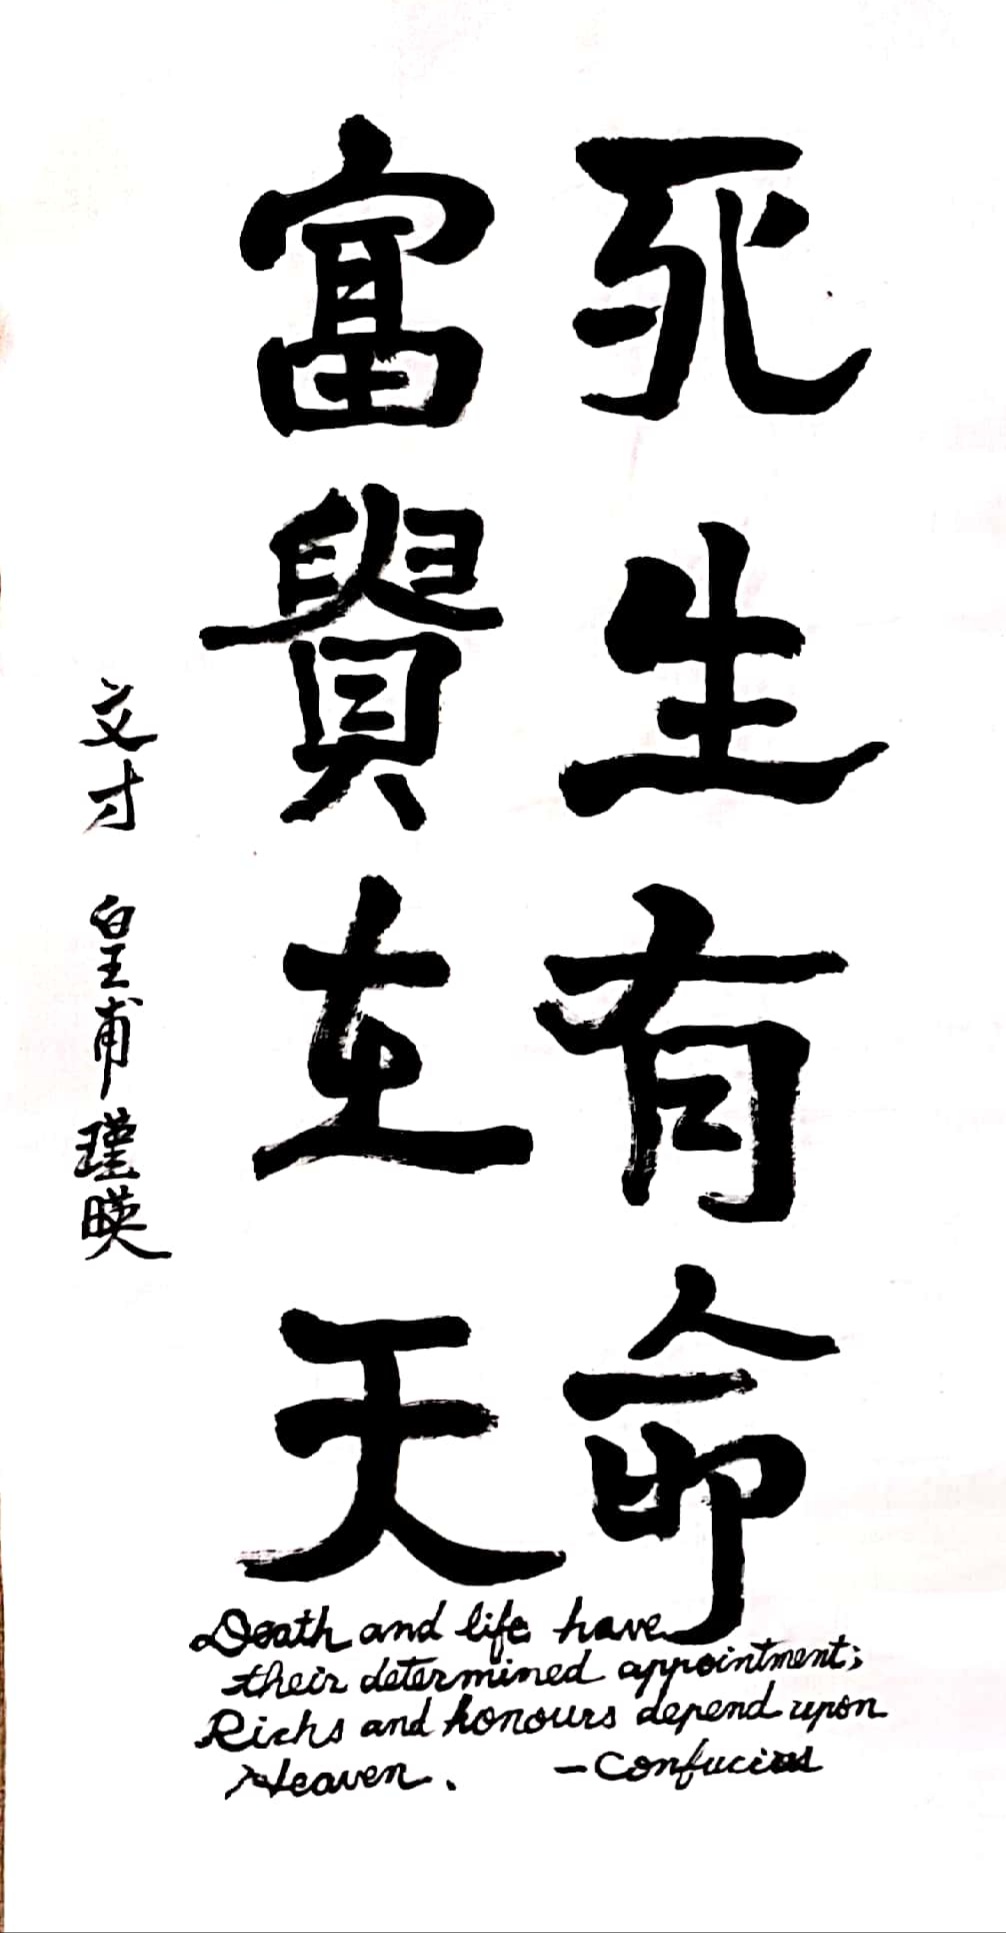 死生有命
富貴在天
文才 皇甫瑾暎
Death and life have
their determined appointment;
Richs and honours depend upon
Heaven. -Confucius